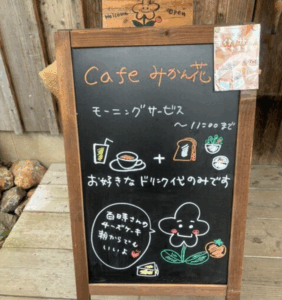 Welcome
open
Cafe みかん花
モーニングサービス
〜11:00まで
+
お好きなドリンク代のみです
チーズケーキ
朝からでも
いいよ